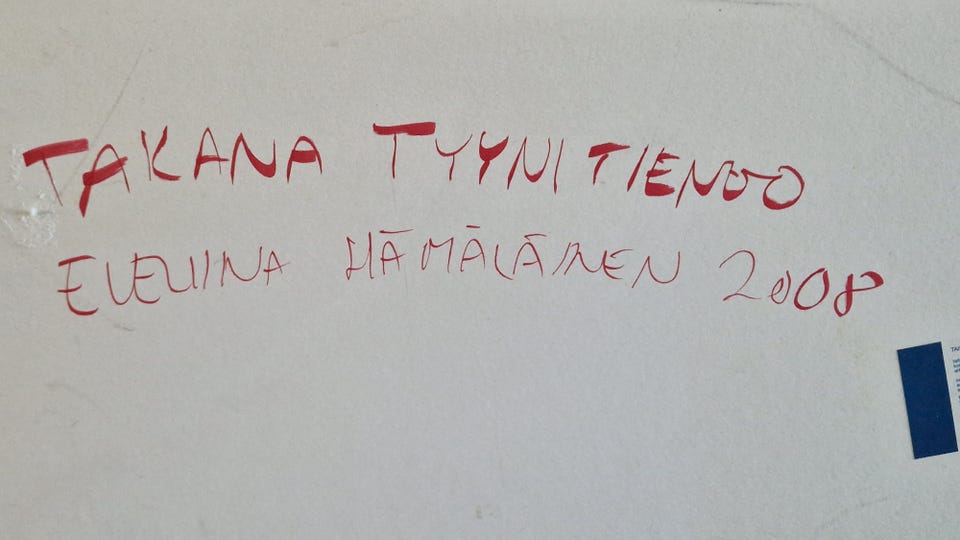 TAKANA TYYNI TIENOO
EVELIINA HÄMÄLÄINEN 2008